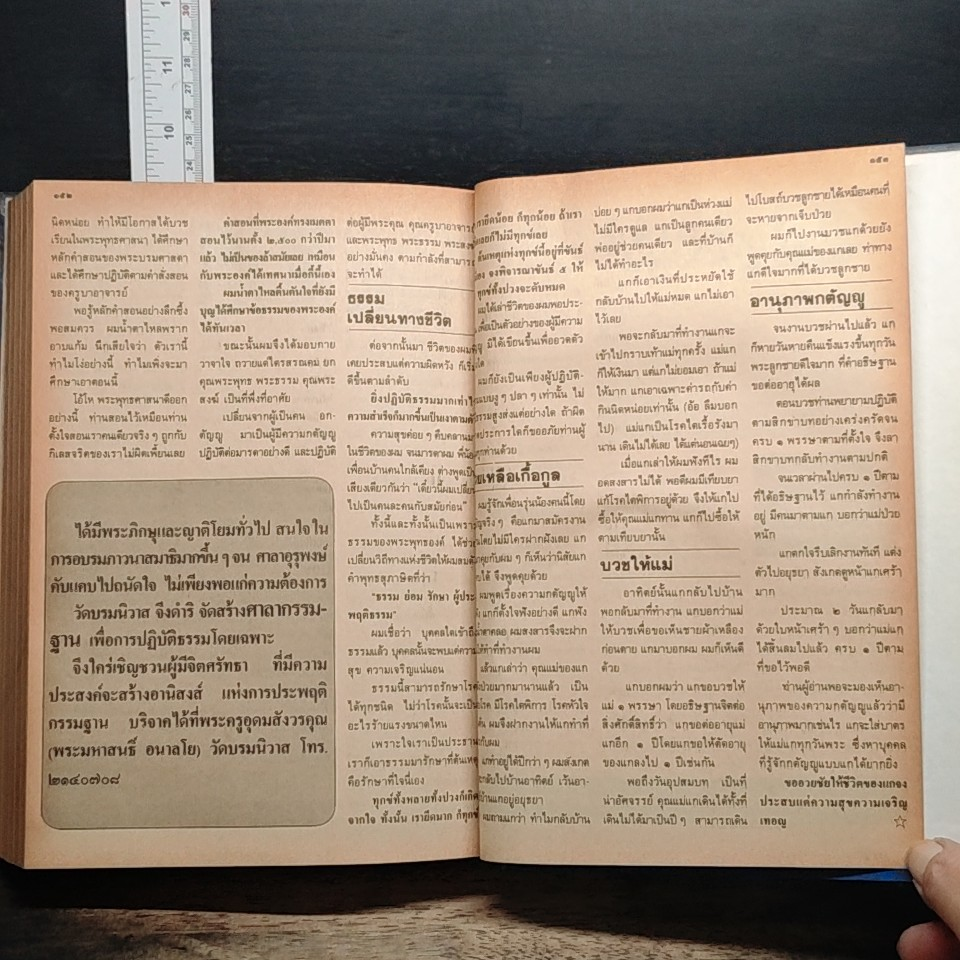 ๑๕๒
นิดหน่อย ทำให้มีโอกาสได้บวช
เรียนในพระพุทธศาสนา ได้ศึกษา
หลักคำสอนของพระบรมศาสดา
และได้ศึกษาปฏิบัติตามคำสั่งสอน
ของครูบาอาจารย์
พอรู้หลักคำสอนอย่างลึกซึ้ง
พอสมควร ผมน้ำตาไหลพราก
อาบแก้ม นึกเสียใจว่า ตัวเรานี้
ทำไมโง่อย่างนี้ ทำไมเพิ่งจะมา
ศึกษาเอาตอนนี้
โอ้โห พระพุทธศาสนาดีออก
อย่างนี้ ท่านสอนไว้เหมือนท่าน
ตั้งใจสอนเราคนเดียวจริง ๆ ถูกกับ
กิเลสจริตของเราไม่ผิดเพี้ยนเลย
คำสอนที่พระองค์ทรงเมตตา
สอนไว้นานตั้ง ๒,๕๐๐ กว่าปีมา
แล้ว ไม่เป็นของล้าสมัยเลย เหมือน
กับพระองค์ได้เทศนาเมื่อกี้นี้เอง
ผมน้ำตาไหลตื้นตันใจที่ยังมี
บุญได้ศึกษาข้อธรรมของพระองค์
ได้ทันเวลา
ขณะนั้นผมจึงได้มอบกาย
วาจาใจ ถวายแด่ไตรสรณคม ยก
คุณพระพุทธ พระธรรม คุณพระ
สงฆ์ เป็นที่พึ่งที่อาศัย
เปลี่ยนจากผู้เป็นคน อก-
ตัญญู มาเป็นผู้มีความกตัญญู
ปฏิบัติต่อมารดาอย่างดี และปฏิบัติ
ได้มีพระภิกษุและญาติโยมทั่วไป สนใจใน
การอบรมภาวนาสมาธิมากขึ้น ๆ จน ศาลาอุรุพงษ์
คับแคบไปถนัดใจ ไม่เพียงพอแก่ความต้องการ
วัดบรมนิวาส จึงดำริ จัดสร้างศาลากรรม-
ฐาน เพื่อการปฏิบัติธรรมโดยเฉพาะ
จึงใคร่เชิญชวนผู้มีจิตศรัทธา ที่มีความ
ประสงค์จะสร้างอานิสงส์ แห่งการประพฤติ
กรรมฐาน บริจาคได้ที่พระครูอุดมสังวรคุณ
(พระมหาสนธิ์ อนาลโย) วัดบรมนิวาส โทร.
๒๑๔๐๗๐๘
ต่อผู้มีพระคุณ คุณครูบาอาจารย์
และพระพุทธ พระธรรม พระสงฆ์
อย่างมั่นคง ตามกำลังที่สามารถ
จะทำได้
ธรรม
เปลี่ยนทางชีวิต
ต่อจากนั้นมา ชีวิตของผม
เคยประสบแต่ความผิดหวัง ก็เริ่ม
ดีขึ้นตามลำดับ
ยิ่งปฏิบัติธรรมมากเท่า
ความสำเร็จก็มากขึ้นเป็นเงาตาม
ความสุขค่อย ๆ คืบคลาน
ในชีวิตของผม จนมารดาผม พี่น้อง
เพื่อนบ้านคนใกล้เคียง ต่างพูดเป็น
เสียงเดียวกันว่า “เดี๋ยวนี้ผมเปลี่ยน
ไปเป็นคนละคนกับสมัยก่อน”
ทั้งนี้และทั้งนั้นเป็นเพราะ
ธรรมของพระพุทธองค์ ได้ช่วย
เปลี่ยนวิถีทางแห่งชีวิตให้ผม
ค่าพุทธสุภาษิตที่ว่า
“ธรรม ย่อม รักษา ผู้ประ
พฤติธรรม”
ผมเชื่อว่า บุคคลใดเข้าถึง
ธรรมแล้ว บุคคลนั้นจะพบแต่ความ
สุข ความเจริญแน่นอน
ธรรมนี้สามารถรักษาโรค
ได้ทุกชนิด ไม่ว่าโรคนั้นจะเป็น
อะไรร้ายแรงขนาดไหน
เพราะใจเราเป็นประธาน
เราก็เอาธรรมมารักษาที่ต้นเหตุ
คือรักษาที่ใจนี่เอง
ทุกข์ทั้งหลายทั้งปวงก็เกิด
จากใจ ทั้งนั้น เรายึดมาก ก็ทุกข์
๑๕๓
เรายึดน้อย ก็ทุกข์น้อย ถ้าเรา
เลยก็ไม่มีทุกข์เลย
ต้นเหตุแห่งทุกข์นี้อยู่ที่ขันธ์
จงพิจารณาขันธ์ ๕ ให้
ทุกข์ทั้งปวงจะดับหมด
ผมได้เล่าชีวิตของผมพอประ-
เพื่อเป็นตัวอย่างของผู้มีความ
มิได้เขียนขึ้นเพื่ออวดตัว
ผมก็ยังเป็นเพียงผู้ปฏิบัติ-
แบบงู ๆ ปลา ๆ เท่านั้น ไม่
ธรรมสูงส่งแต่อย่างใด ถ้าผิด
ประการใดก็ขออภัยท่านผู้
ทุกท่านด้วย
ยเหลือเกื้อกูล
ผมรู้จักเพื่อนรุ่นน้องคนนี้โดย
จริง ๆ คือแกมาสมัครงาน
โดยไม่มีใครฝากฝังเลย แก
คุยกับผม ๆ ก็เห็นว่านิสัยแก
ได้ จึงพูดคุยด้วย
ผมพูดเรื่องความกตัญญูให้
แกก็ตั้งใจฟังอย่างดี แกฟัง
น้ำตาคลอ ผมสงสารจึงจะฝาก
ให้ทำที่ทำงานผม
แล้วแกเล่าว่า คุณแม่ของแก
ป่วยมากมานานแล้ว เป็น
โรค มีโรคไตพิการ โรคหัวใจ
ผมจึงฝากงานให้แกทำที่
กับผม
แกทำอยู่ได้ปีกว่า ๆ ผมสังเกต
กลับไปบ้านอาทิตย์ เว้นอา-
บ้านแกอยู่อยุธยา
ผมถามแกว่า ทำไมกลับบ้าน
บ่อย ๆ แกบอกผมว่าแกเป็นห่วงแม่
ไม่มีใครดูแล แกเป็นลูกคนเดียว
พ่ออยู่ช่วยคนเดียว และที่บ้านก็
ไม่ได้ทำอะไร
แกก็เอาเงินที่ประหยัดใช้
กลับบ้านไปให้แม่หมด แกไม่เอา
ไว้เลย
พอจะกลับมาที่ทำงานแกจะ
เข้าไปกราบเท้าแม่ทุกครั้ง แม่แก
ก็ให้เงินมา แต่แกไม่ยอมเอา ถ้าแม่
ให้มาก แกเอาเฉพาะค่ารถกับค่า
กินนิดหน่อยเท่านั้น (อ้อ ลืมบอก
ไป) แม่แกเป็นโรคไตเรื้อรังมา
นาน เดินไม่ได้เลย ได้แต่นอนเฉยๆ)
เมื่อแกเล่าให้ผมฟังทีไร ผม
อดสงสารไม่ได้ พอดีผมมีเทียบยา
แก้โรคไตพิการอยู่ด้วย จึงให้แกไป
ซื้อให้คุณแม่แกทาน แกก็ไปซื้อให้
ตามเทียบยานั้น
บวชให้แม่
อาทิตย์นั้นแกกลับไปบ้าน
พอกลับมาที่ทำงาน แกบอกว่าแม่
ให้บวชเพื่อขอเห็นชายผ้าเหลือง
ก่อนตาย แกมาบอกผม ผมก็เห็นดี
ด้วย
แกบอกผมว่า แกขอบวชให้
แม่ ๑ พรรษา โดยอธิษฐานจิตต่อ
สิ่งศักดิ์สิทธิ์ว่า แกขอต่ออายุแม่
แกอีก ๑ ปีโดยแกขอให้ตัดอายุ
ของแกลงไป ๑ ปีเช่นกัน
พอถึงวันอุปสมบท เป็นที่
น่าอัศจรรย์ คุณแม่แกเดินได้ทั้งที่
เดินไม่ได้มาเป็นปี ๆ สามารถเดิน
ไปโบสถ์บวชลูกชายได้เหมือนคนที่
จะหายจากเจ็บป่วย
ผมก็ไปงานบวชแกด้วยยัง
พูดคุยกับคุณแม่ของแกเลย ท่าทาง
แกดีใจมากที่ได้บวชลูกชาย
อานุภาพกตัญญู
จนงานบวชผ่านไปแล้ว แก
ก็หายวันหายคืนแข็งแรงขึ้นทุกวัน
พระลูกชายดีใจมาก ที่คำอธิษฐาน
ขอต่ออายุได้ผล
ตอนบวชท่านพยายามปฏิบัติ
ตามสิกขาบทอย่างเคร่งครัดจน
ครบ ๑ พรรษาตามที่ตั้งใจ จึงลา
สิกขาบทกลับทำงานตามปกติ
จนเวลาผ่านไปครบ ๑ ปีตาม
ที่ได้อธิษฐานไว้ แกกำลังทำงาน
อยู่ มีคนมาตามแก บอกว่าแม่ป่วย
หนัก
แกตกใจรีบเลิกงานทันที แต่ง
ตัวไปอยุธยา สังเกตดูหน้าแกเศร้า
มาก
ประมาณ ๒ วันแกกลับมา
ด้วยใบหน้าเศร้า ๆ บอกว่าแม่แก
ได้สิ้นลมไปแล้ว ครบ ๑ ปีตาม
ที่ขอไว้พอดี
ท่านผู้อ่านพอจะมองเห็นอา-
นุภาพของความกตัญญูแล้วว่ามี
อานุภาพมากเช่นไร แกจะใส่บาตร
ให้แม่แกทุกวันพระ ซึ่งหาบุคคล
ที่รู้จักกตัญญูแบบแกได้ยากยิ่ง
ขออวยชัยให้ชีวิตของแกจง
ประสบแต่ความสุขความเจริญ
เทอญ ☆
10
11
24
25
26
27
28
29
30